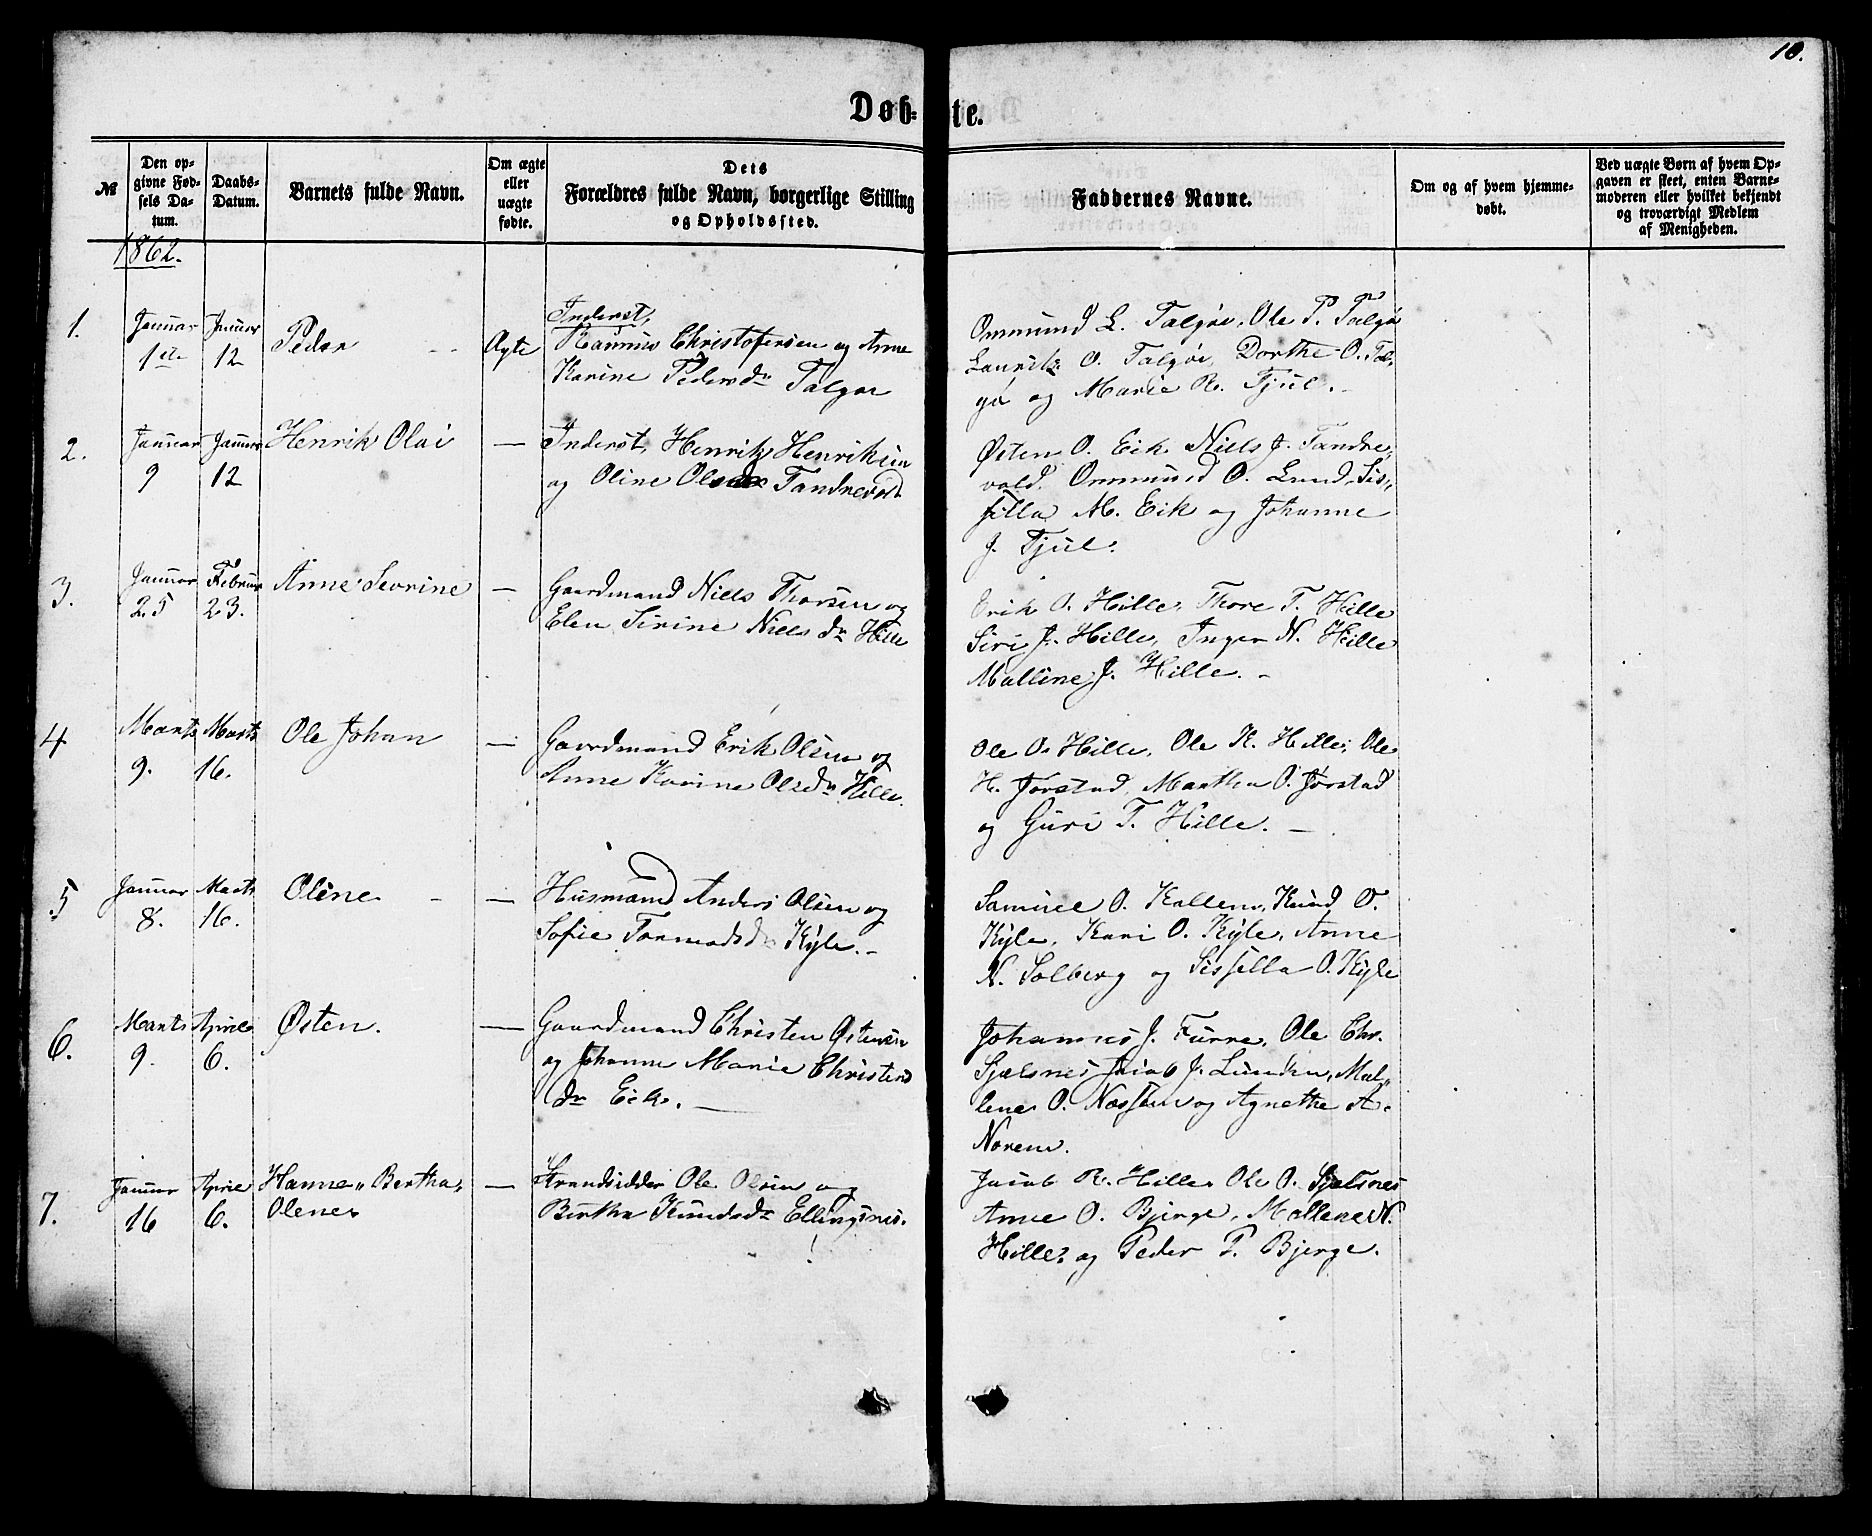 10.
Døb-te.
№
Den op-
givne Fød-
sels Da-
tum.
Daabs-
Datum.
Barnets fulde Navn.
Om ægte
eller
uægte
fødte.
Dets
Forældres fulde Navn, borgerlige Stilling
og Opholdssted.
Faddernes Navne.
Om og af hvem hjemme-
døbt.
Ved uægte Børn af hvem Op-
gaven er skeet, enten Barne-
moderen eller hvilket bekjendt
og troværdigt Medlem
af Menigheden.
1862.
1.
Januar
1ste
Januar
12
Peder
Ægte
Inderst,
Rasmus Christofersen og Anne
Karine Pedersdr Talgøe
Ommund L. Talgøe, Ole P. Talgø
Lauritz O. Talgøe, Dorthe O. Tal-
gø og Marie R. Fjul.
2.
Januar
9
Januar
12
Henrik Olai
—
Inderst, Henrik Henriksen
og Oline Olsdr Tandrevold
Østen O. Eik Niels J. Tandre-
vold. Ommund O. Lund, Sis-
silla M. Eik og Johanne
J. Fjul.
3.
Januar
25
Februar
23.
Anne Sevrine
—
Gaardmand Niels Thorsen og
Elen Sirine Nielsdr Hille
Erik O. Hille, Thore T. Hille
Siri J. Hille, Inger N. Hille
Malline J. Hille. -
4
Marts
9.
Marts
16.
Ole Johan
—
Gaardmand Erik Olsen og
Anne Karine Olsdr Hille.
Ole O. Hille, Ole K. Hille, Ole
H. Jørstad, Martha O. Jørstad
og Guri T. Hille. —
5
Januar
8.
Marts
16.
Oline
—
Husmand Anders Olsen og
Sofie Tormodsdr Kyle. -
Samuel O. Kallem, Knud O.
Kyle, Kari O. Kyle, Anne
N. Solberg og Sissella O. Kyle
6.
Marts
9.
April
6.
Østen.
—
Gaardmand Christen Østensen
og Johanne Marie Christens
dr Eik. —
Johannes J. Furre, Ole Chr.
Sjælsnes Jacob J. Lunden, Mal-
lene O. Nossen og Agnethe A.
Norem.
7.
Januar
16
April
6.
Hanne Bertha
Olene
—
Strandsidder Ole Olsen og
Bertha Knudsdr Ellingsnes.
Jacob R. Hille, Ole O. Sjælsnes
Anne O. Bjerge, Mallene N.
Hille, og Peder P. Bjerge.